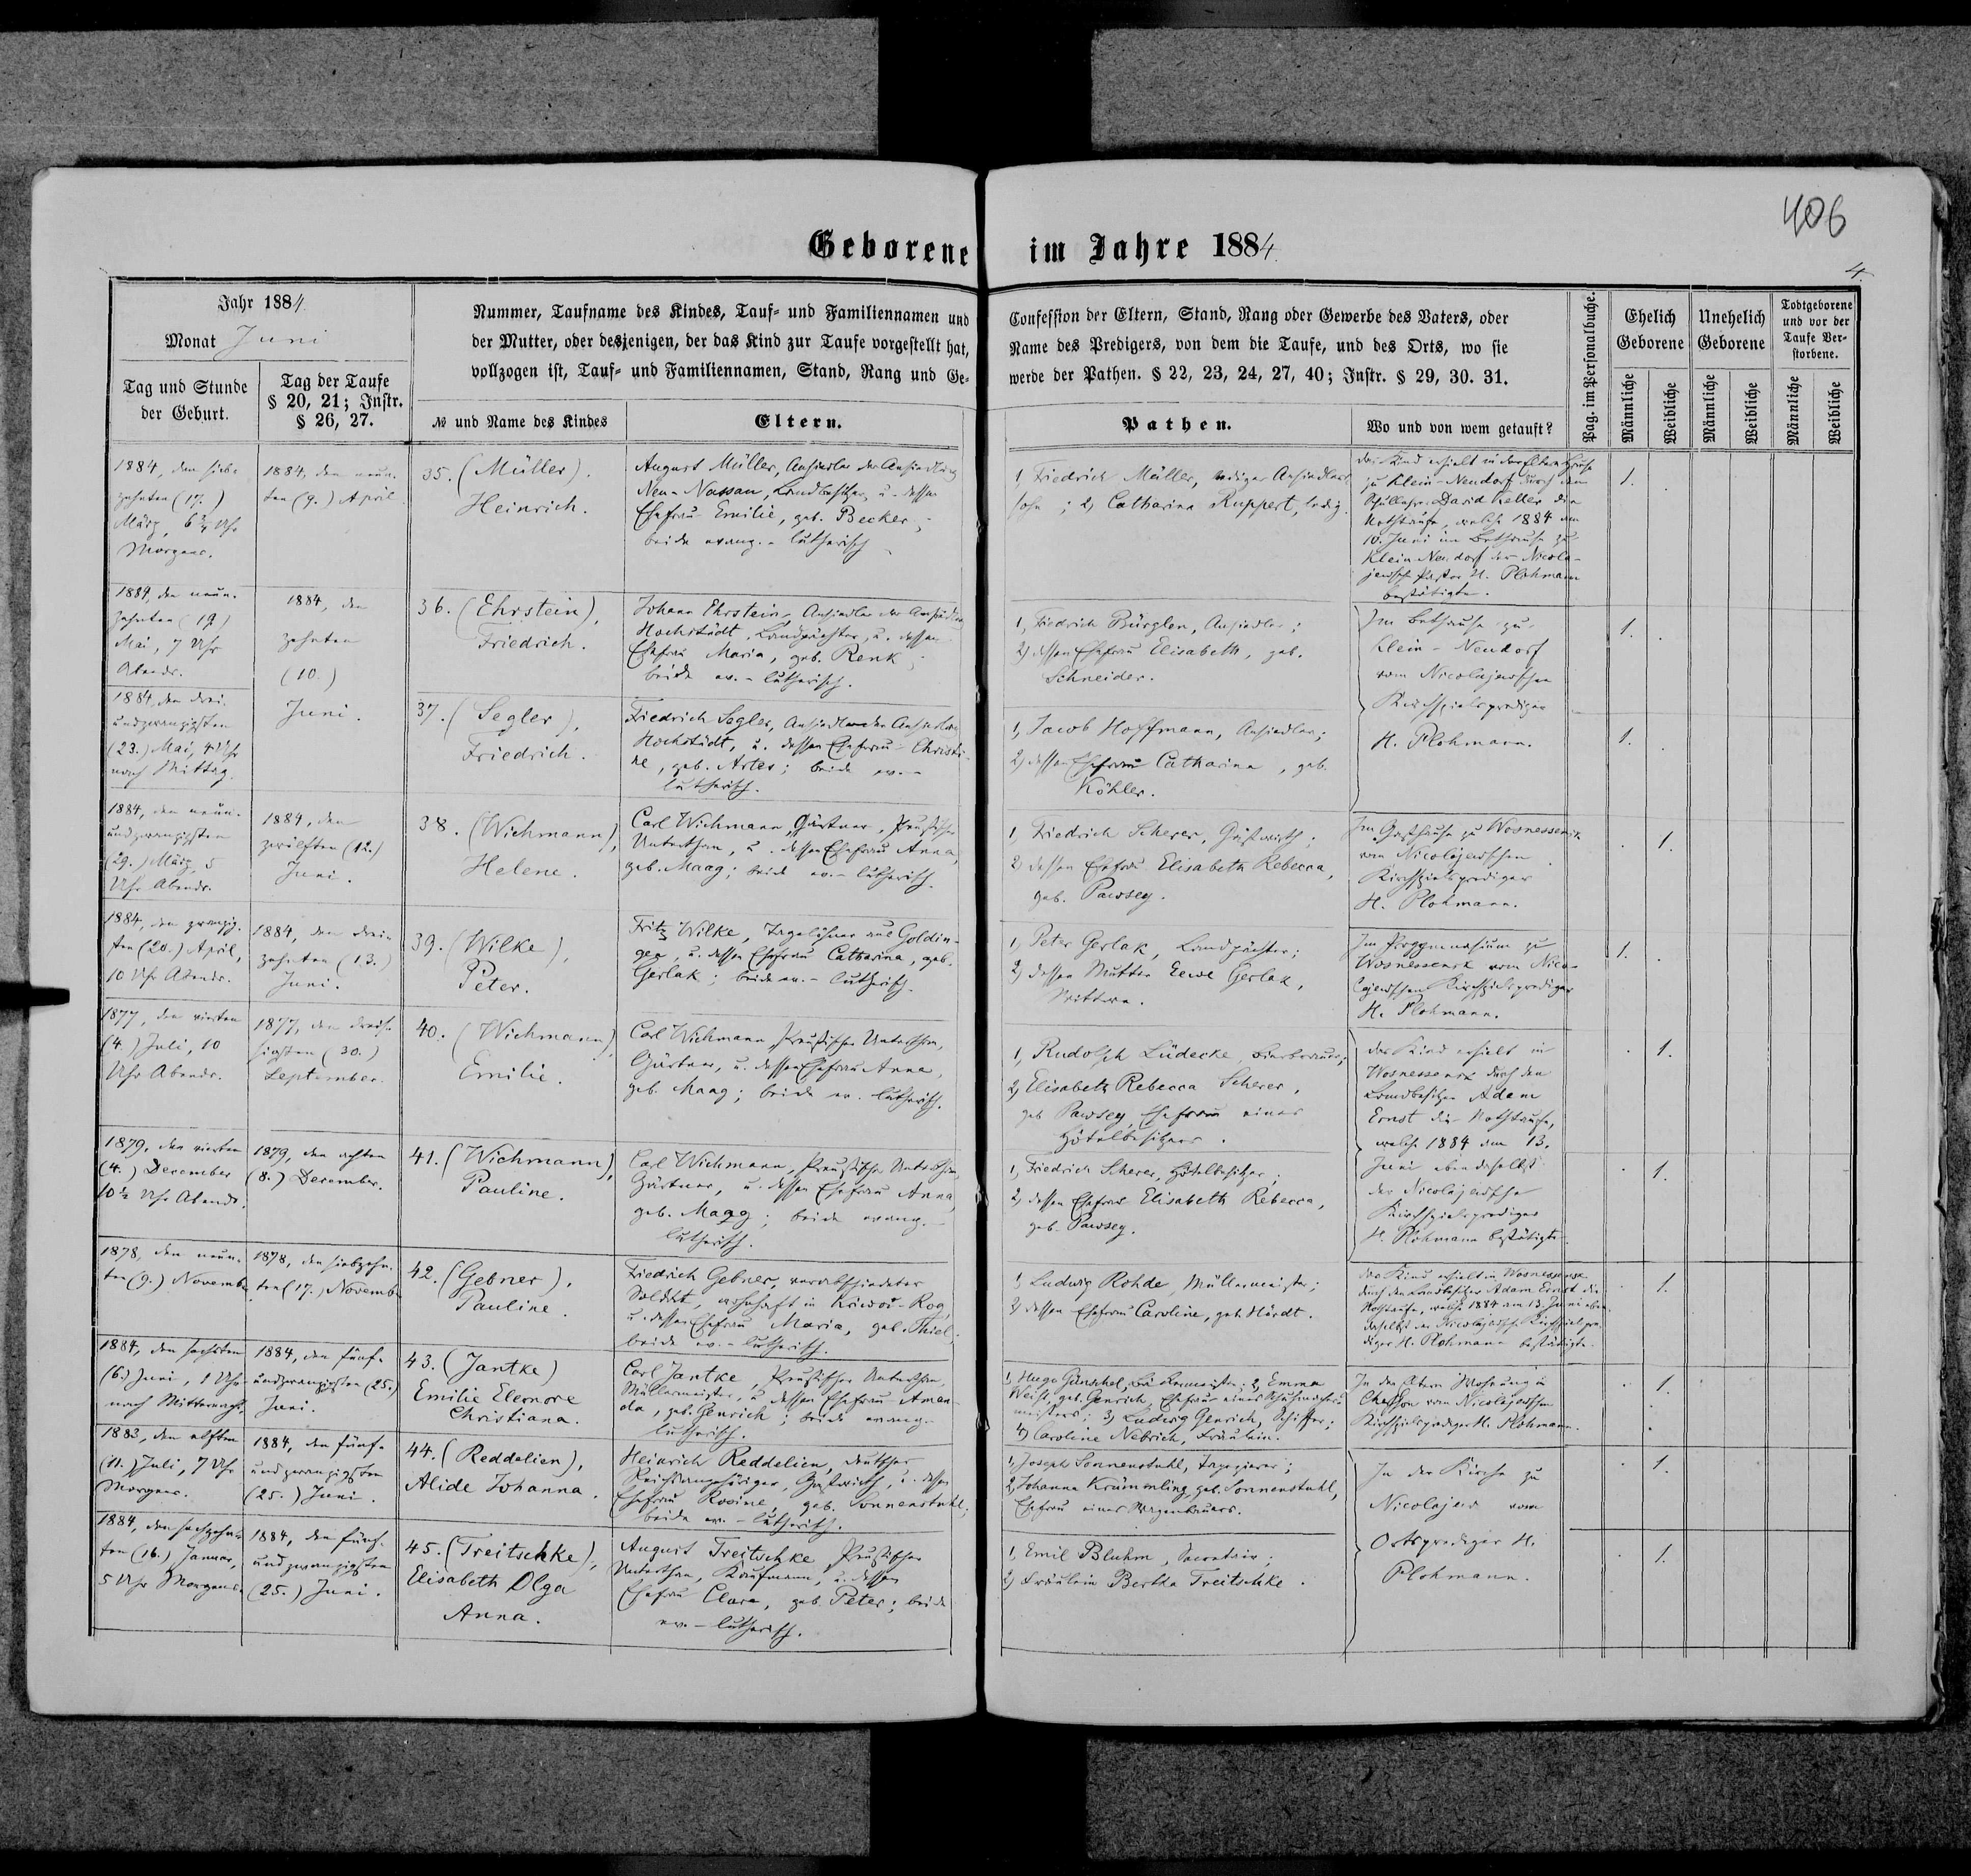 406
4.
Geborene im Jahre 1884.
Jahr 1884.
Monat Juni
Tag und Stunde
der Geburt.
Tag der Taufe
§ 20, 21; Instr.
§ 26, 27.
Nummer, Taufname des Kindes, Tauf- und Familiennamen und
der Mutter, oder desjenigen, der das Kind zur Taufe vorgestellt hat,
vollzogen ist, Tauf- und Familiennamen, Stand, Rang und Ge-
№ und Name des Kindes
Eltern.
Confession der Eltern, Stand, Rang oder Gewerbe des Vaters, oder
Name des Predigers, von dem die Taufe, und des Orts, wo sie
werde der Pathen. § 22, 23, 24, 27, 40; Instr. § 29, 30. 31.
Pathen.
Wo und von wem getauft?
Pag. im Personalbuche.
Ehelich
Geborene
Unehelich
Geborene
Todtgeborene
und vor der
Taufe Ver-
storbene.
Männliche
Weibliche
Männliche
Weibliche
Männliche
Weibliche
1884, den sieb-
zehnten (17.)
März, 6¾ Uhr
Morgens.
1884, den neun-
ten (9.) April.
35. (Müller).
Heinrich.
August Müller, Ansiedler der Ansiedlung
Neu-Nassau, Landbesitzer, u. dessen
Ehefrau Emilie, geb. Becker;
beide evang.-lutherisch.
1, Friedrich Müller, lediger Ansiedlers-
sohn; 2, Catharina Ruppert, ledig.
Das Kind erhielt in der Eltern Hause
zu Klein-Neudorf durch den
Schullehrer David Keller die
Nothtaufe, welche 1884 am
10. Juni im Bethause zu
Klein Neudorf der Nicola-
jewsche Pastor H. Plohmann
bestätigte.
1.
1884, den neun-
zehnten (19.)
Mai, 7 Uhr
Abends.
1884, den
zehnten
(10.)
Juni.
36. (Ehrstein),
Friedrich.
Johann Ehrstein, Ansiedler der Ansiedlung
Hochstädt, Landpächter, u. dessen
Ehefrau Maria, geb. Renk;
beide ev.-lutherisch.
1, Friedrich Bürglen, Ansiedler;
2, dessen Ehefrau Elisabeth, geb.
Schneider.
Im Bethause zu
Klein-Neudorf
vom Nicolajewschen
Kirchspielsprediger
H. Plohmann.
1.
1884, den drei-
undzwanzigsten
(23.) Mai, 4 Uhr
nach Mittag.
37. (Segler),
Friedrich.
Friedrich Segler, Ansiedler der Ansiedlung
Hochstädt, u. dessen Ehefrau Christi-
ne, geb. Artes; beide ev.-
lutherisch.
1, Jacob Hoffmann, Ansiedler;
2, dessen Ehefrau Catharina, geb.
Köhler.
1.
1884, den neun-
undzwanzigsten
(29.) März, 5
Uhr Abends.
1884, den
zwölften (12.)
Juni.
38. (Wichmann),
Helene.
Carl Wichmann, Gärtner, Preußischer
Unterthan, u. dessen Ehefrau Anna,
geb. Maag; beide ev.-lutherisch.
1, Friedrich Scherer, Gastwirth;
2, dessen Ehefrau Elisabeth Rebecca,
geb. Pawsey.
Im Gasthause zu Wosnessensk
vom Nicolajewschen
Kirchspielsprediger
H. Plohmann.
1.
1884, den zwanzig-
sten (20.) April,
10 Uhr Abends.
1884, den drei-
zehnten (13.)
Juni.
39. (Wilke),
Peter.
Fritz Wilke, Tagelöhner aus Goldin-
gen, u. dessen Ehefrau Catharina, geb.
Gerlak; beide ev.-lutherisch.
1, Peter Gerlak, Landpächter;
2, dessen Mutter Eewe Gerlak,
Wittwe.
Im Progymnasium zu
Wosnessensk vom Nico-
lajewschen Kirchspielsprediger
H. Plohmann.
1.
1877, den vierten
(4.) Juli, 10
Uhr Abends.
1877, den dreis-
sigsten (30.)
September.
40. (Wichmann),
Emilie.
Carl Wichmann, Preußischer Unterthan,
Gärtner, u. dessen Ehefrau Anna,
geb. Maag; beide ev. lutherisch.
1, Rudolph Lüdecke, Bierbrauer;
2, Elisabeth Rebecca Scherer,
geb. Pawsey, Ehefrau eines
Hôtelbesitzers.
Das Kind erhielt in
Wosnessensk durch den
Landbesitzer Adam
Ernst die Nothtaufe,
welche 1884 am 13.
Juni ebendaselbst
der Nicolajewsche
Kirchspielsprediger
H. Plohmann bestätigte.
1.
1879, den vierten
(4.) December
10½ Uhr Abends.
1879, den achten
(8.) December.
41. (Wichmann),
Pauline.
Carl Wichmann, Preußischer Unterthan,
Gärtner, u. dessen Ehefrau Anna,
geb. Maag; beide evang.-
lutherisch.
1, Friedrich Scherer, Hôtelbesitzer;
2, dessen Ehefrau Elisabeth Rebecca,
geb. Pawsey.
1.
1878, den neun-
ten (9.) November
1878, den siebzehn-
ten (17.) November
42. (Gebner),
Pauline.
Friedrich Gebner, verabschiedeter
Soldat, wohnhaft in Kriwoi-Rog,
u. dessen Ehefrau Maria, geb. Thiel;
beide ev.-lutherisch.
1, Ludwig Rohde, Müllermeister;
2, dessen Ehefrau Caroline, geb. Härdt.
Das Kind erhielt in Wosnessensk
durch den Landbesitzer Adam Ernst die
Nothtaufe, welche 1884 am 13. Juni eben-
daselbst der Nicolajewsche Kirchspielspre-
diger H. Plohmann bestätigte.
1.
1884, den sechsten
(6.) Juni, 1 Uhr
nach Mitternacht.
1884, den fünf-
undzwanzigsten (25.)
Juni.
43. (Jantke)
Emilie Eleonore
Christiana.
Carl Jantke, Preußischer Unterthan,
Müllermeister, u. dessen Ehefrau Aman-
da, geb. Genrich; beide evang.-
lutherisch.
1, Hugo Hänschel, 2, Emma
Weiß, geb. Genrich, Ehefrau eines Schuhmacher-
meisters; 3, Ludwig Genrich, Schiffer;
4, Caroline Nebrich, Fräulein.
In der Eltern Wohnung in
Cherson vom Nicolajewschen
Kirchspielsprediger H. Plohmann.
1.
1883, den elften
(11.) Juli, 7 Uhr
Morgens.
1884, den fünf-
undzwanzigsten
(25.) Juni.
44. (Reddelien),
Alide Johanna.
Heinrich Reddelien, deutscher
Reichsangehöriger, Gastwirth, u. dessen
Ehefrau Rosine, geb. Sonnenstuhl;
beide ev.-lutherisch.
1, Joseph Sonnenstuhl, Tapezierer;
2, Johanna Krümmling, geb. Sonnenstuhl,
Ehefrau eines Wagenbauers.
In der Kirche zu
Nicolajew vom
Ortsprediger H.
Plohmann.
1.
1884, den sechzehn-
ten (16.) Januar,
5 Uhr Morgens.
1884, den fünf-
undzwanzigsten
(25.) Juni.
45. (Treitschke),
Elisabeth Olga
Anna.
August Treitschke, Preußischer
Unterthan, Kaufmann, u. dessen
Ehefrau Clara, geb. Peter; beide
ev.-lutherisch.
1, Emil Bluhm, Secretair;
2, Fräulein Bertha Treitschke.
1.